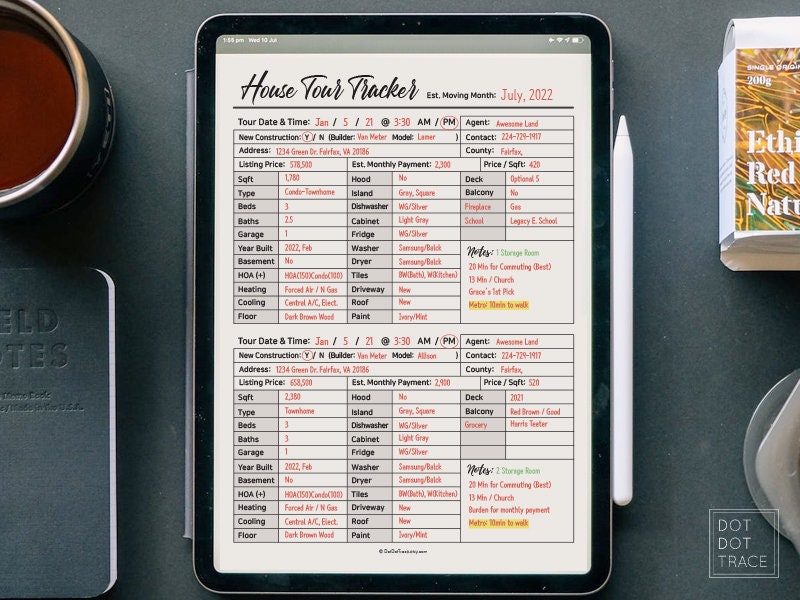 1:55 pm Wed 10 Jul
House Tour Tracker Est. Moving Month: July, 2022
Tour Date & Time: Jan / 5 / 21 @ 3:30 AM / PM Agent: Awesome Land
New Construction: Y / N (Builder: Van Meter Model: Lamer ) Contact: 224-729-1917
Address: 1234 Green Dr. Fairfax, VA 20186 County: Fairfax,
Listing Price: 578,500 Est. Monthly Payment: 2,300 Price / Sqft: 420
Sqft 1,780 Hood No Deck Optional 5
Type Condo-Townhome Island Gray, Square Balcony No
Beds 3 Dishwasher WG/Silver Fireplace Gas
Baths 2.5 Cabinet Light Gray School Legacy E. School
Garage 1 Fridge WG/Silver
Year Built 2022, Feb Washer Samsung/Balck Notes: 1 Storage Room
Basement No Dryer Samsung/Balck 20 Min for Commuting (Best)
HOA (+) HOA(150)Condo(100) Tiles BW(Bath), W(Kitchen) 13 Min / Church
Heating Forced Air / N Gas Driveway New Grace's 1st Pick
Cooling Central A/C, Elect. Roof New Metro: 10min to walk
Floor Dark Brown Wood Paint Ivory/Mint
Tour Date & Time: Jan / 5 / 21 @ 3:30 AM / PM Agent: Awesome Land
New Construction: Y / N (Builder: Van Meter Model: Allison ) Contact: 224-729-1917
Address: 1234 Green Dr. Fairfax, VA 20186 County: Fairfax,
Listing Price: 658,500 Est. Monthly Payment: 2,900 Price / Sqft: 520
Sqft 2,380 Hood No Deck 2021
Type Townhome Island Grey, Square Balcony Red Brown / Good
Beds 3 Dishwasher WG/Silver Grocery Harris Teeter
Baths 3 Cabinet Light Gray
Garage 1 Fridge WG/Silver
Year Built 2022, Feb Washer Samsung/Balck Notes: 2 Storage Room
Basement No Dryer Samsung/Balck 20 Min for Commuting (Best)
HOA (+) HOA(150)Condo(100) Tiles BW(Bath), W(Kitchen) 13 Min / Church
Heating Forced Air / N Gas Driveway New Burden for monthly payment
Cooling Central A/C, Elect. Roof New Metro: 10min to walk
Floor Dark Brown Wood Paint Ivory/Mint
SINGLE ORIGIN
200g
Ethi
Red
Natu
DOT
DOT
TRACE